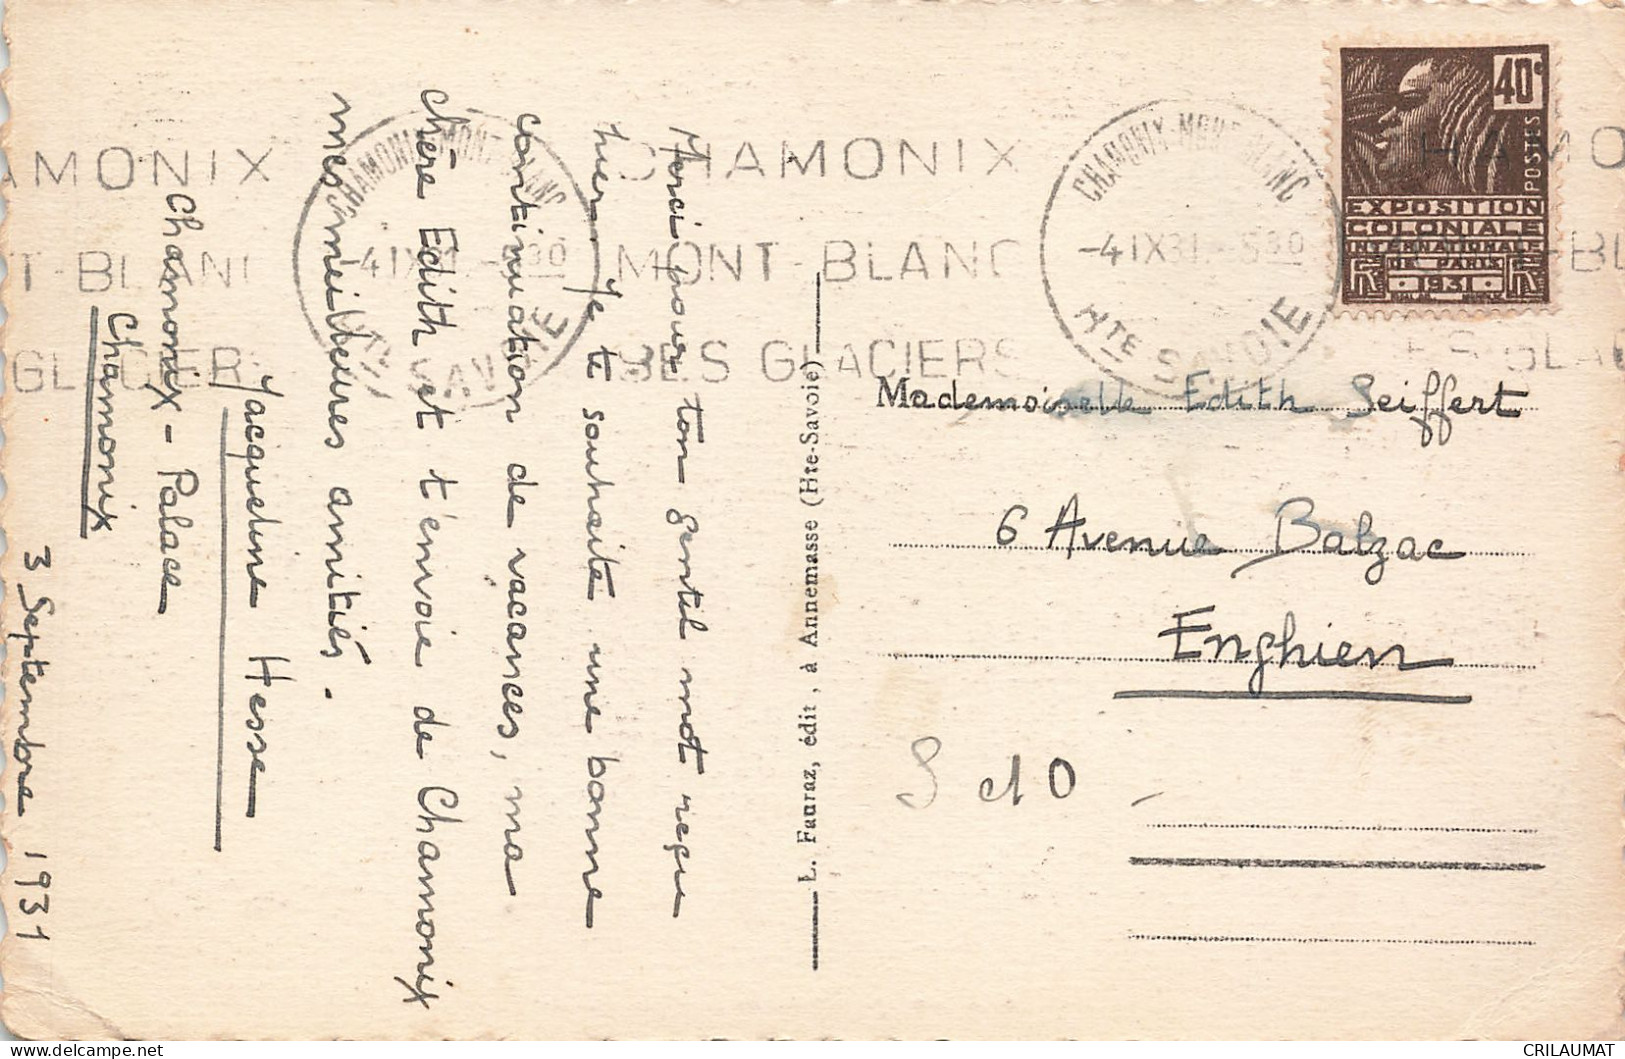 Merci pour ton gentil mot reçu
hier. Je te souhaite une bonne
continuation de vacances, ma
chère Edith et t'envoie de Chamonix
mes meilleures amitiés.
Jacqueline Hesse
Chamonix - Palace
Chamonix
3 Septembre 1931
L. Fauraz, édit, à Annemasse (Hte-Savoie)
40c
POSTES
EXPOSITION
COLONIALE
INTERNATIONALE
DE PARIS
RF 1931 RF
CHAMONIX-MONT-BLANC
-4 IX 31 - 5 30
HTE SAVOIE
CHAMONIX-MONT-BLANC
-4 IX 31 - 5 30
HTE SAVOIE
CHAMONIX
MONT-BLANC
SES GLACIERS
AMONIX
T-BLANC
GLACIERS
HAMO
-BL
ES GLAC
Mademoiselle Edith Seiffert
6 Avenue Balzac
Enghien
S d10
CRILAUMAT